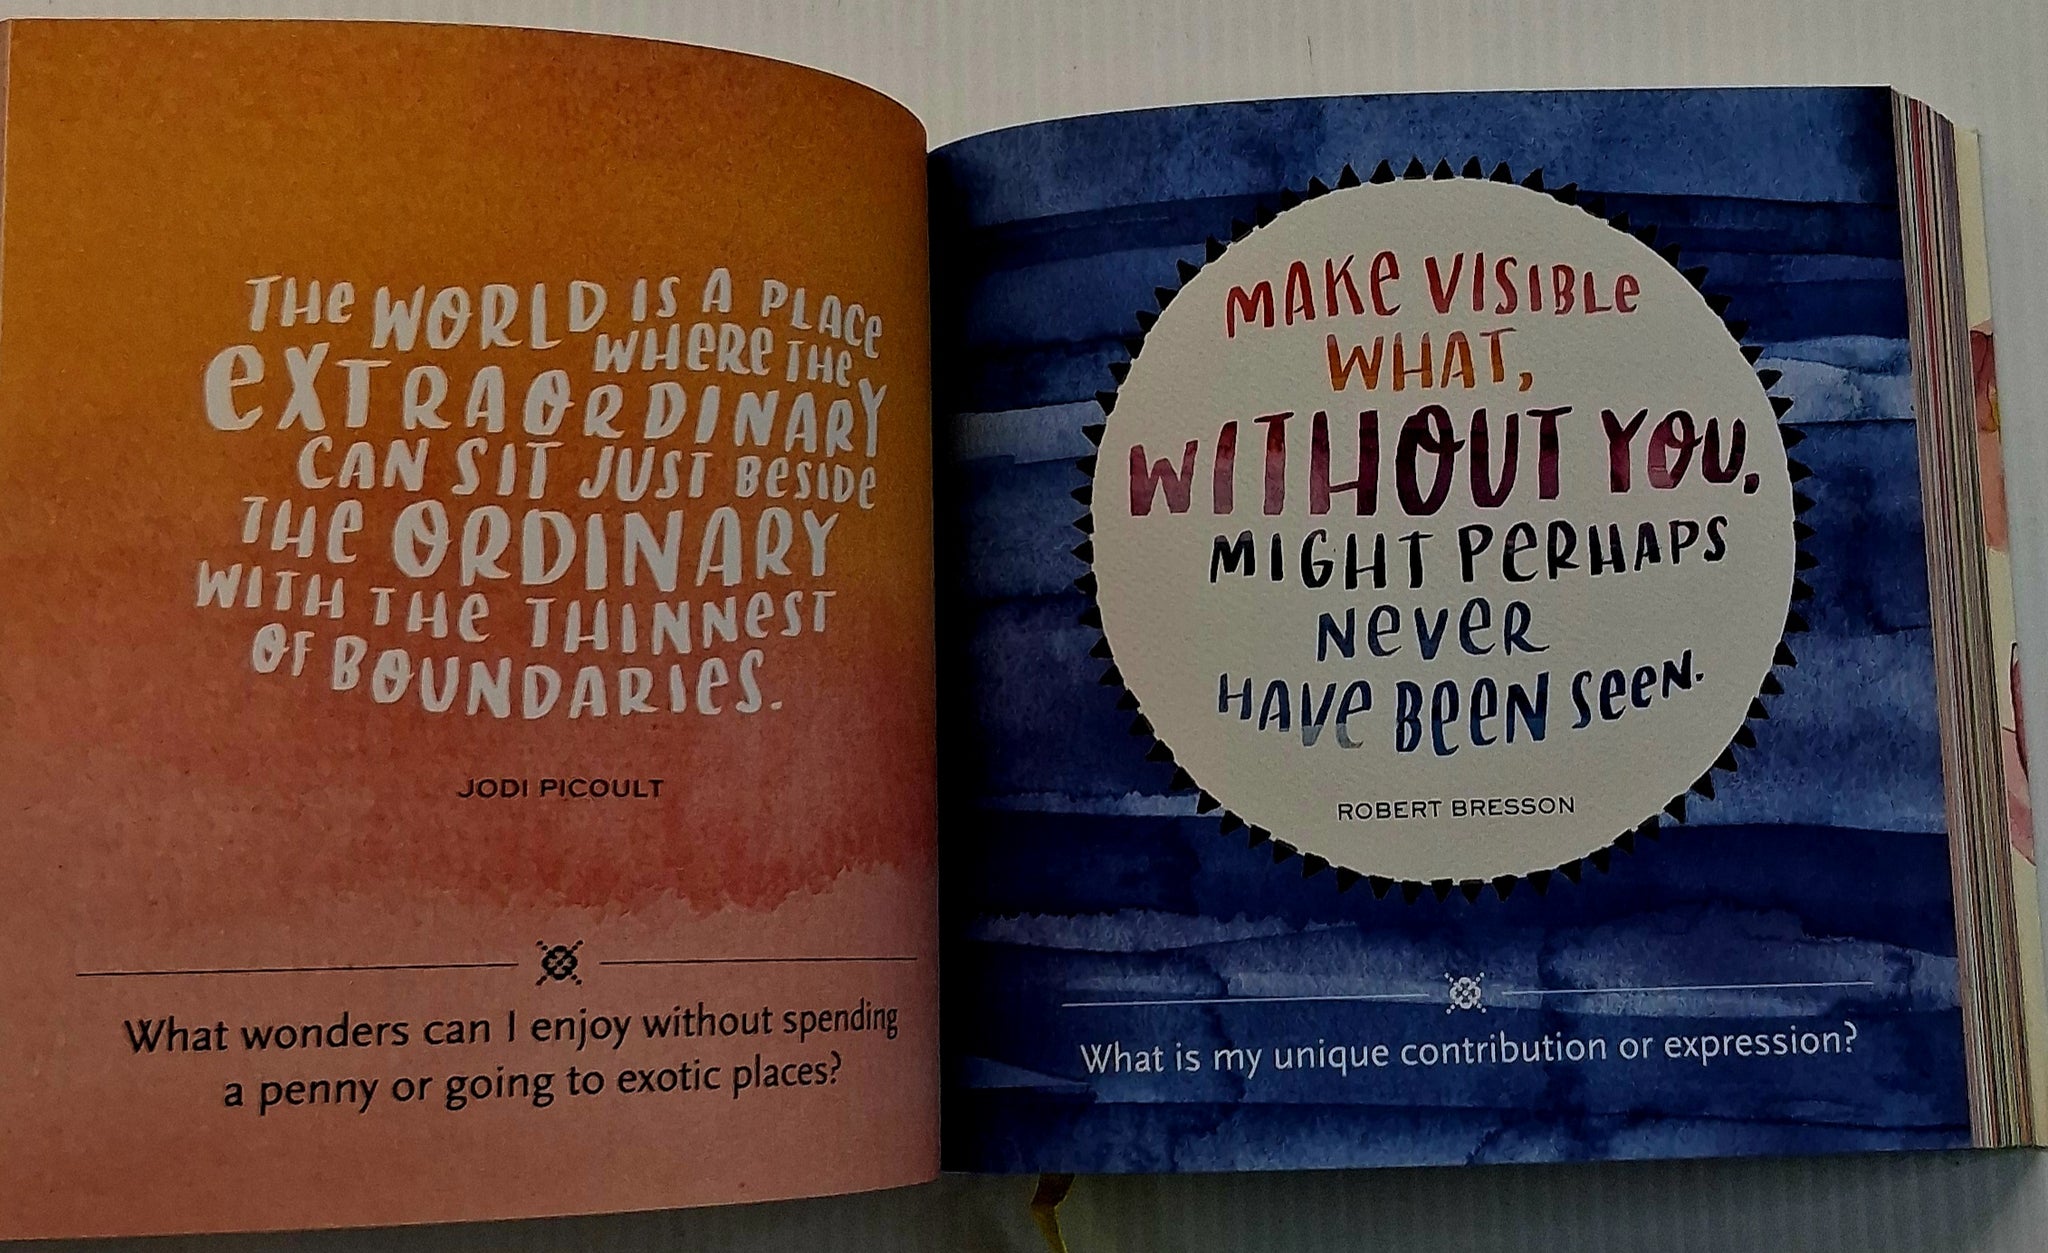 THE WORLD IS A PLACE
WHERE THE
EXTRAORDINARY
CAN SIT JUST BESIDE
THE ORDINARY
WITH THE THINNEST
OF BOUNDARIES.
JODI PICOULT
What wonders can I enjoy without spending
a penny or going to exotic places?
MAKE VISIBLE
WHAT,
WITHOUT YOU,
MIGHT PERHAPS
NEVER
HAVE BEEN SEEN.
ROBERT BRESSON
What is my unique contribution or expression?